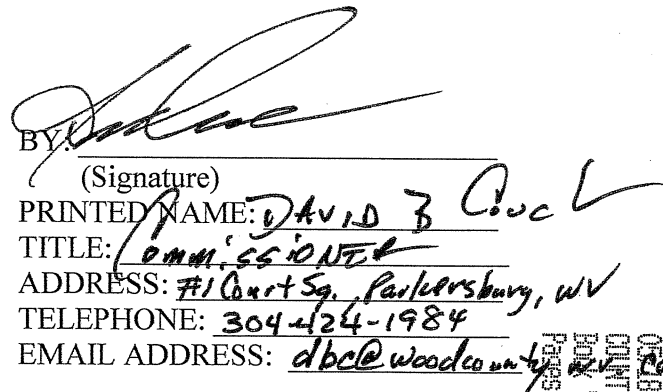 BY:
(Signature)
PRINTED NAME: DAVID B Couch
TITLE: COMMISSIONER
ADDRESS: #1 Court Sq., Parkersburg, WV
TELEPHONE: 304-424-1984
EMAIL ADDRESS: dbc@woodcountywv.c